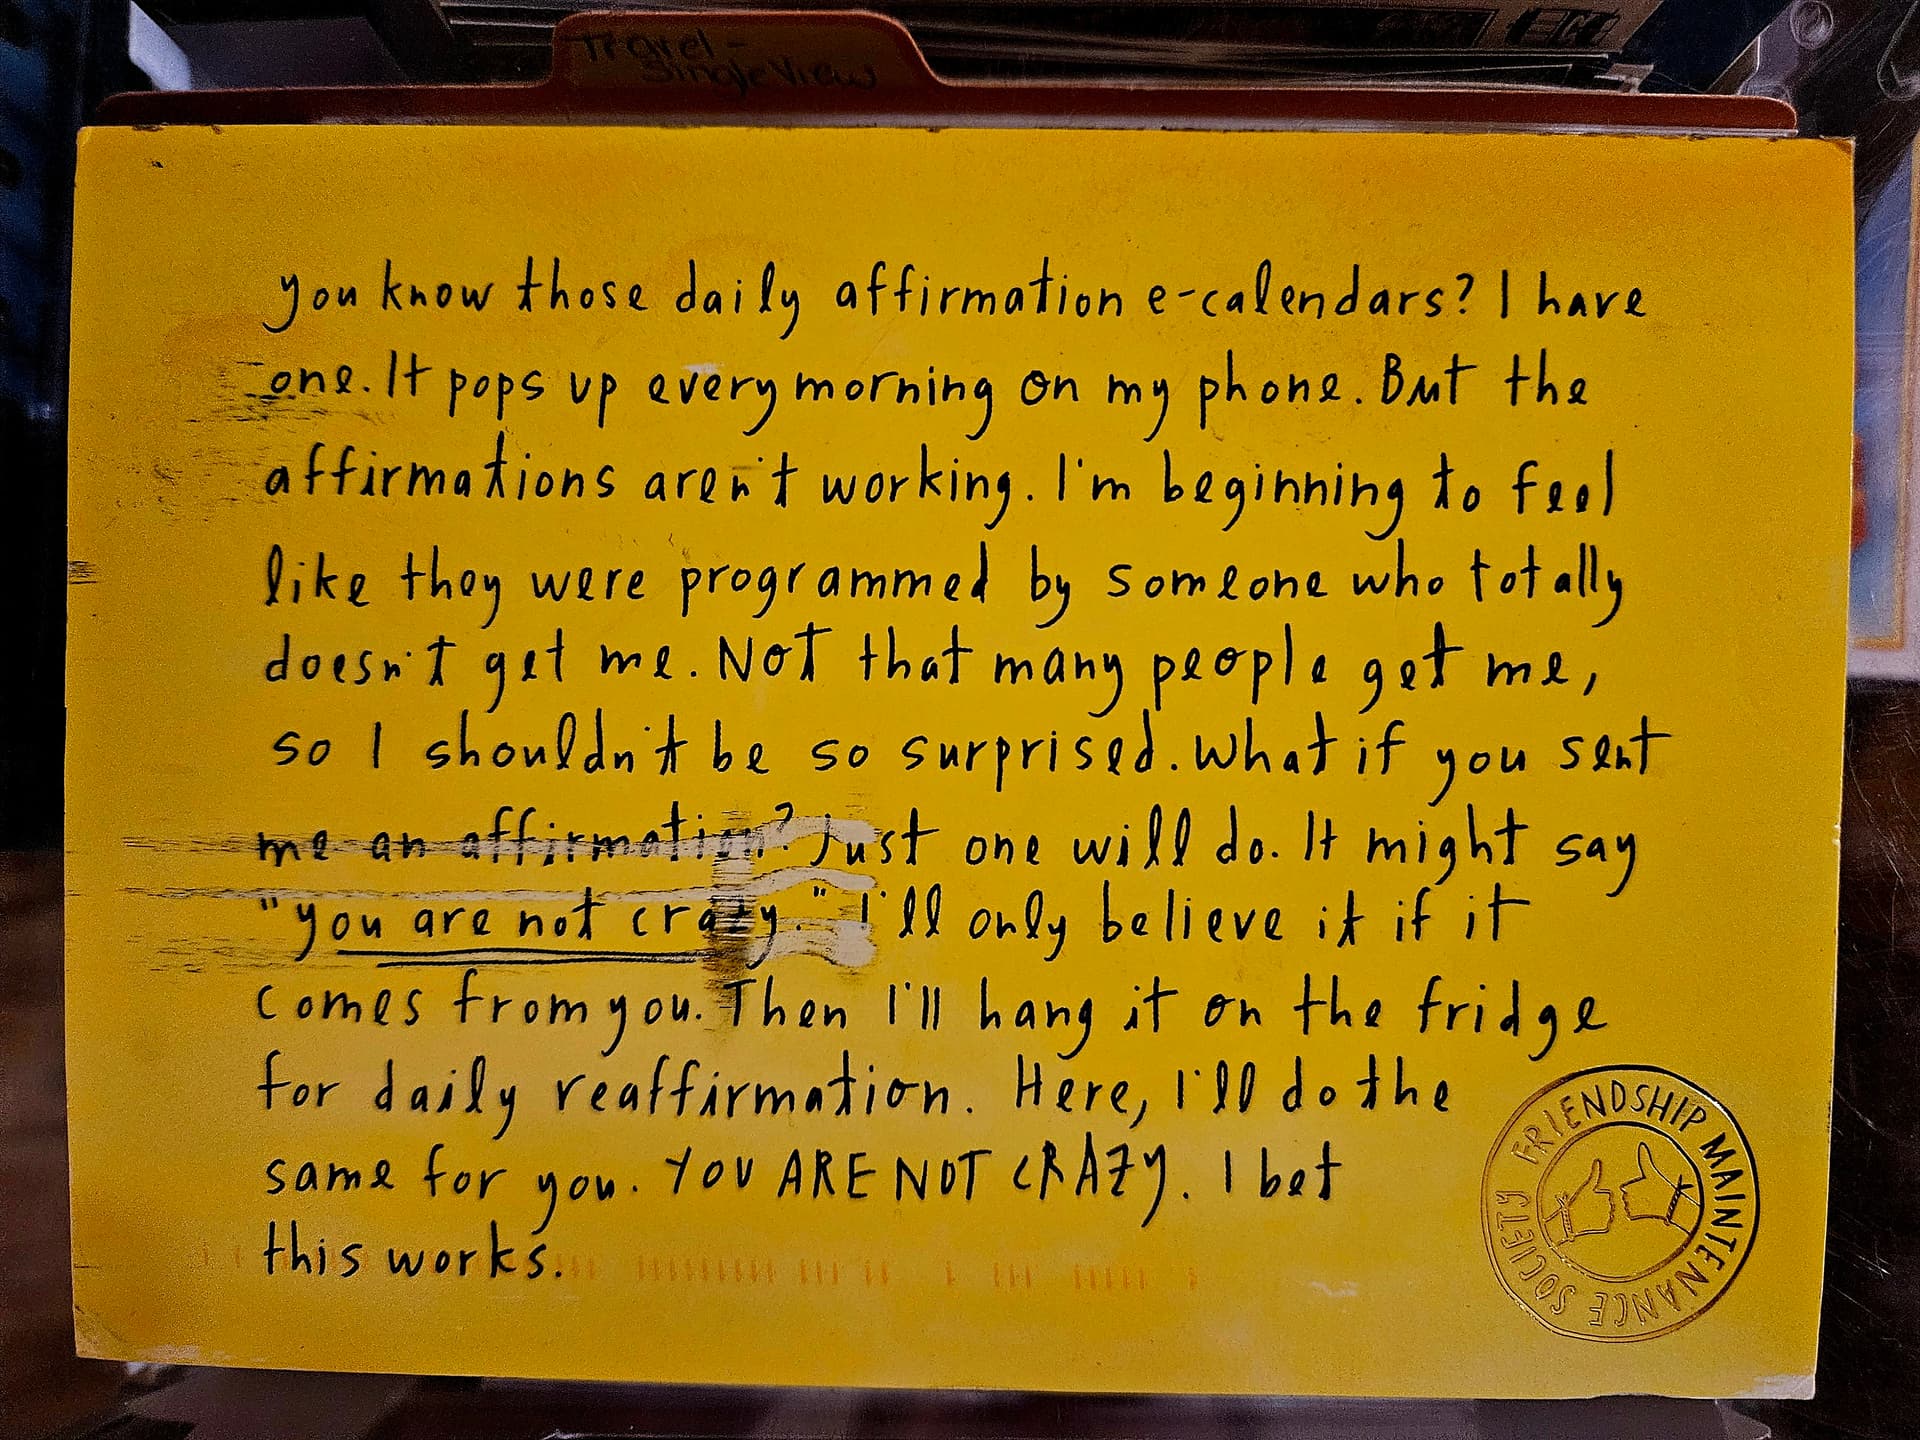 Travel -
Single View
you know those daily affirmation e-calendars? I have
one. It pops up every morning on my phone. But the
affirmations aren't working. I'm beginning to feel
like they were programmed by someone who totally
doesn't get me. Not that many people get me,
so I shouldn't be so surprised. What if you sent
me an affirmation? Just one will do. It might say
"you are not crazy." I'll only believe it if it
comes from you. Then I'll hang it on the fridge
for daily reaffirmation. Here, I'll do the
same for you. YOU ARE NOT CRAZY. I bet
this works.
FRIENDSHIP MAINTENANCE SOCIETY